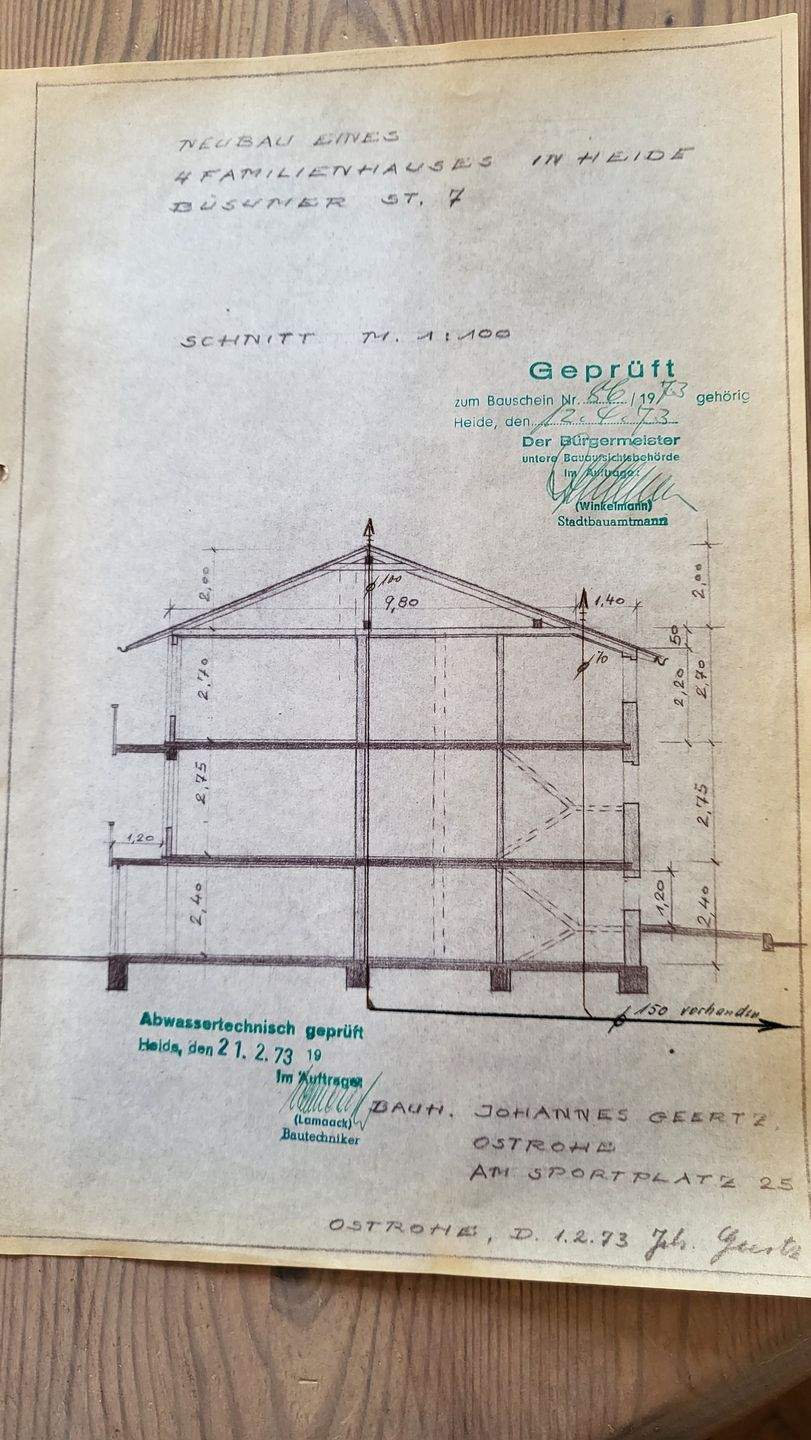 NEUBAU EINES
4 FAMILIENHAUSES IN HEIDE
BÜSUMER ST. 7
SCHNITT M. 1:100
Geprüft
zum Bauschein Nr. 86 /1973 gehörig
Heide, den 12.4.73
Der Bürgermeister
untere Bauaufsichtsbehörde
Im Auftrage:
(Winkelmann)
Stadtbauamtmann
2,00
ø 100
9,80
1,40
2,00
50
ø 70
2,70
2,20
2,70
2,75
2,75
1,20
2,40
1,20
2,40
ø 150 vorhanden
Abwassertechnisch geprüft
Heide, den 21. 2. 73 19
Im Auftrage:
(Lamaack)
Bautechniker
BAUH. JOHANNES GEERTZ,
OSTROHE
AM SPORTPLATZ 25
OSTROHE, D. 1.2.73 Joh. Geertz